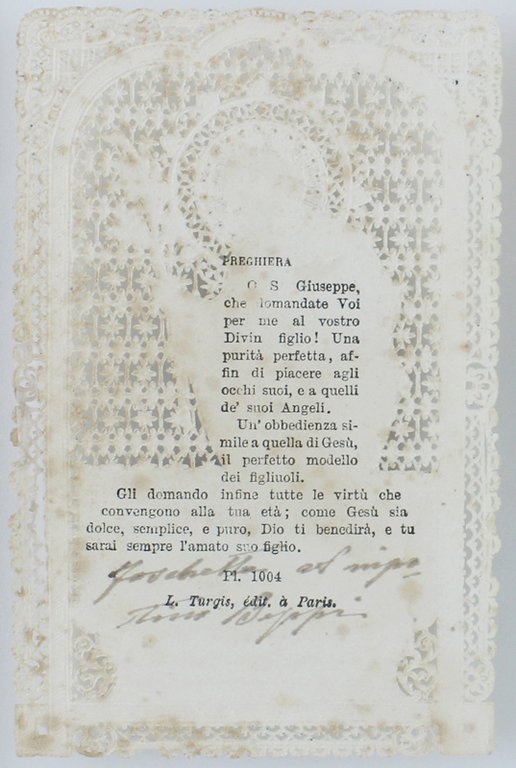 PREGHIERA
O S Giuseppe,
che domandate Voi
per me al vostro
Divin figlio! Una
purità perfetta, af-
fin di piacere agli
occhi suoi, e a quelli
de' suoi Angeli.
Un' obbedienza si-
mile a quella di Gesù,
il perfetto modello
dei figliuoli.
Gli domando infine tutte le virtù che
convengono alla tua età; come Gesù sia
dolce, semplice, e puro, Dio ti benedirà, e tu
sarai sempre l'amato suo figlio.
al nipo-
Pl. 1004
L. Turgis, édit. à Paris.
tino Beppi